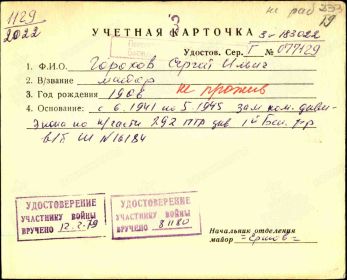 1129
2022
3
не раб 233
19
УЧЕТНАЯ КАРТОЧКА
3-183022
Удостов. Сер. Г № 077129
1. Ф.И.О. Горохов Сергей Ильич
2. В/звание майор
3. Год рождения 1906 не прожив
4. Основание: с 6.1941 по 5.1945 зам. ком. диви-
зиона по 292
в/б № 16184
УДОСТОВЕРЕНИЕ
УЧАСТНИКУ ВОЙНЫ
ВРУЧЕНО 12.2.79
УДОСТОВЕРЕНИЕ
УЧАСТНИКУ ВОЙНЫ
ВРУЧЕНО 81180
Начальник отделения
майор =Ершов=